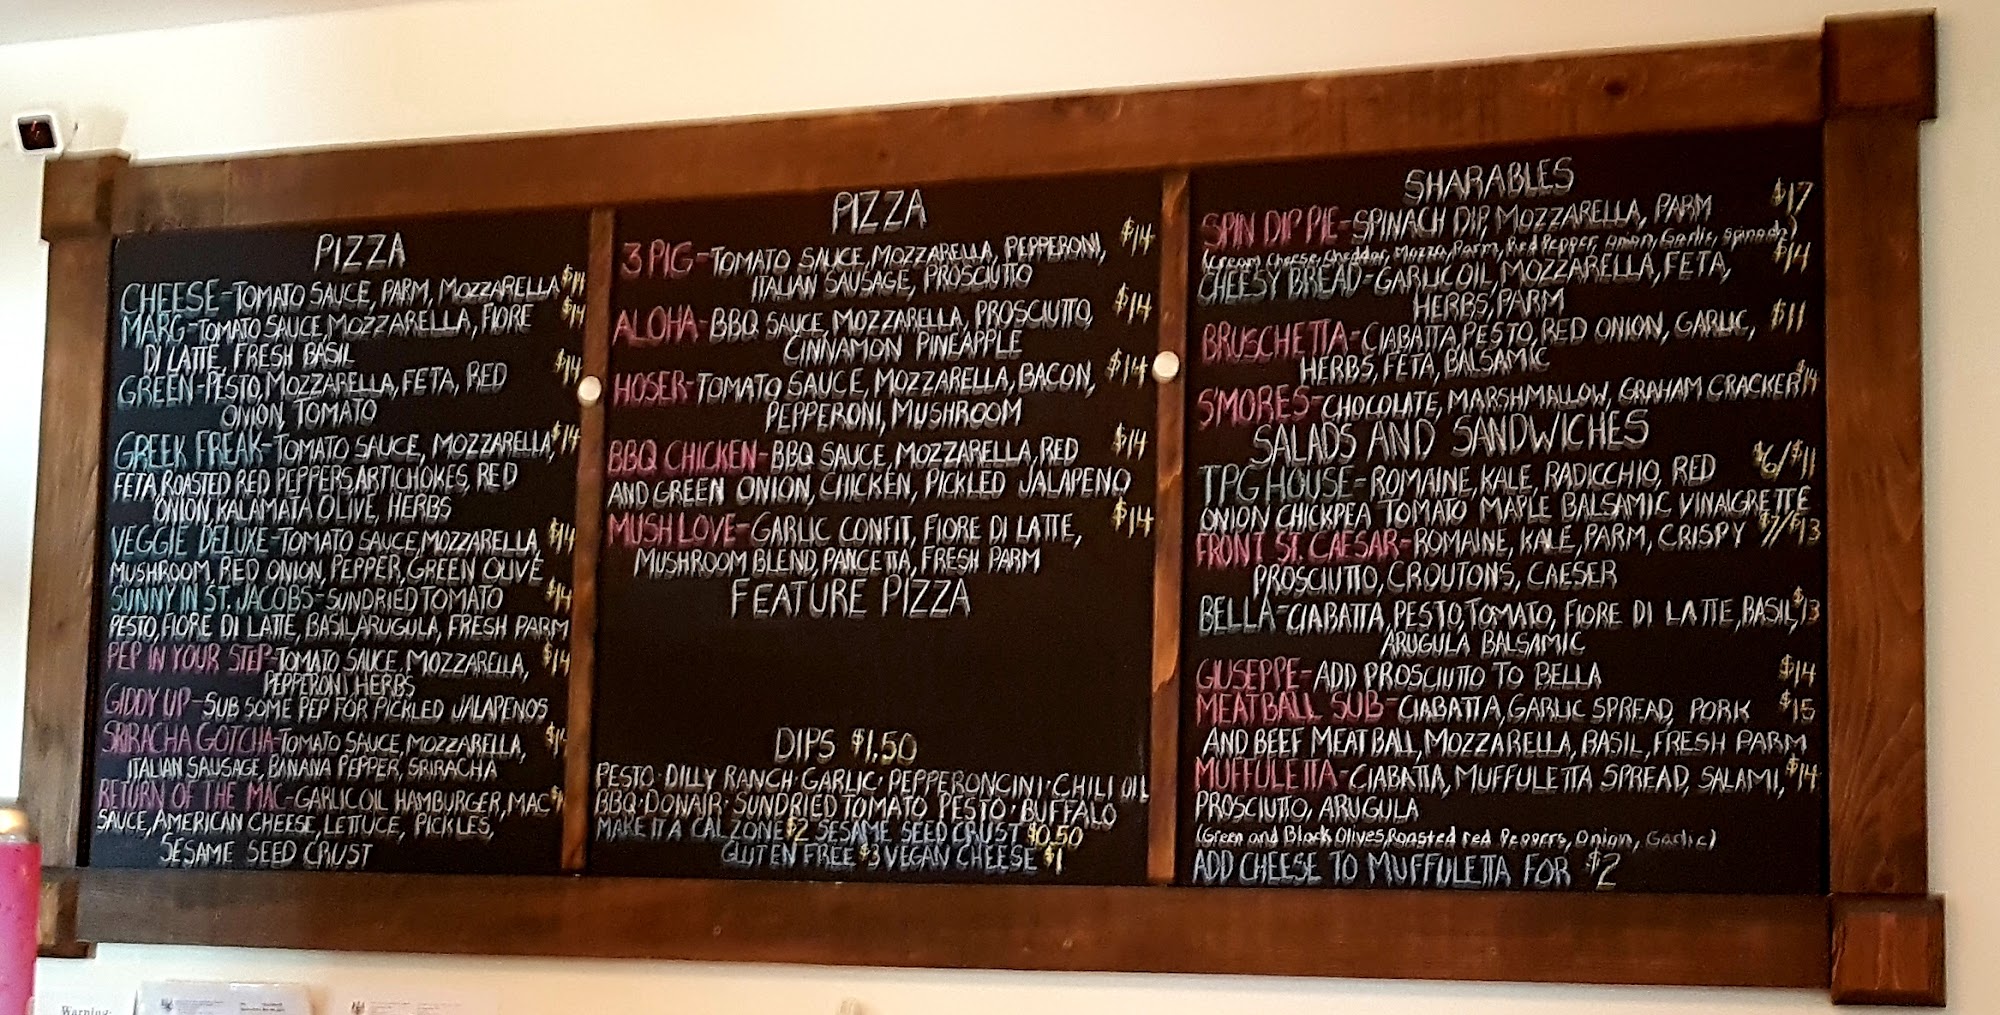 PIZZA
CHEESE-TOMATO SAUCE, PARM, MOZZARELLA $14
MARG-TOMATO SAUCE, MOZZARELLA, FIORE $14
DI LATTE, FRESH BASIL
GREEN-PESTO, MOZZARELLA, FETA, RED $14
ONION, TOMATO
GREEK FREAK-TOMATO SAUCE, MOZZARELLA, $14
FETA, ROASTED RED PEPPERS, ARTICHOKES, RED
ONION, KALAMATA OLIVE, HERBS
VEGGIE DELUXE-TOMATO SAUCE, MOZZARELLA, $14
MUSHROOM, RED ONION, PEPPER, GREEN OLIVE
SUNNY IN ST. JACOBS-SUNDRIED TOMATO $14
PESTO, FIORE DI LATTE, BASIL, ARUGULA, FRESH PARM
PEP IN YOUR STEP-TOMATO SAUCE, MOZZARELLA, $14
PEPPERONI, HERBS
GIDDY UP-SUB SOME PEP FOR PICKLED JALAPENOS
SRIRACHA GOTCHA-TOMATO SAUCE, MOZZARELLA, $14
ITALIAN SAUSAGE, BANANA PEPPER, SRIRACHA
RETURN OF THE MAC-GARLIC OIL, HAMBURGER, MAC
SAUCE, AMERICAN CHEESE, LETTUCE, PICKLES,
SESAME SEED CRUST
PIZZA
3 PIG-TOMATO SAUCE, MOZZARELLA, PEPPERONI, $14
ITALIAN SAUSAGE, PROSCIUTTO
ALOHA-BBQ SAUCE, MOZZARELLA, PROSCIUTTO, $14
CINNAMON PINEAPPLE
HOSER-TOMATO SAUCE, MOZZARELLA, BACON, $14
PEPPERONI, MUSHROOM
BBQ CHICKEN-BBQ SAUCE, MOZZARELLA, RED $14
AND GREEN ONION, CHICKEN, PICKLED JALAPENO
MUSH LOVE-GARLIC CONFIT, FIORE DI LATTE, $14
MUSHROOM BLEND, PANCETTA, FRESH PARM
FEATURE PIZZA
DIPS $1.50
PESTO · DILLY RANCH · GARLIC · PEPPERONCINI · CHILI OIL
BBQ · DONAIR · SUNDRIED TOMATO PESTO · BUFFALO
MAKE IT A CALZONE $2 SESAME SEED CRUST $0.50
GLUTEN FREE $3 VEGAN CHEESE $1
SHARABLES
SPIN DIP PIE-SPINACH DIP, MOZZARELLA, PARM $17
(Cream Cheese, Cheddar, Mozza, Parm, Red Pepper, Onion, Garlic, Spinach)
CHEESY BREAD-GARLIC OIL, MOZZARELLA, FETA, $14
HERBS, PARM
BRUSCHETTA-CIABATTA, PESTO, RED ONION, GARLIC, $11
HERBS, FETA, BALSAMIC
S'MORES-CHOCOLATE, MARSHMALLOW, GRAHAM CRACKER $14
SALADS AND SANDWICHES
TPG HOUSE-ROMAINE, KALE, RADICCHIO, RED $6/$11
ONION CHICKPEA TOMATO MAPLE BALSAMIC VINAIGRETTE
FRONT ST. CAESAR-ROMAINE, KALE, PARM, CRISPY $7/$13
PROSCIUTTO, CROUTONS, CAESER
BELLA-CIABATTA, PESTO, TOMATO, FIORE DI LATTE, BASIL, $13
ARUGULA BALSAMIC
GIUSEPPE-ADD PROSCIUTTO TO BELLA $14
MEATBALL SUB-CIABATTA, GARLIC SPREAD, PORK $15
AND BEEF MEATBALL, MOZZARELLA, BASIL, FRESH PARM
MUFFULETTA-CIABATTA, MUFFULETTA SPREAD, SALAMI, $14
PROSCIUTTO, ARUGULA
(Green and Black Olives, Roasted red Peppers, Onion, Garlic)
ADD CHEESE TO MUFFULETTA FOR $2
Warning: